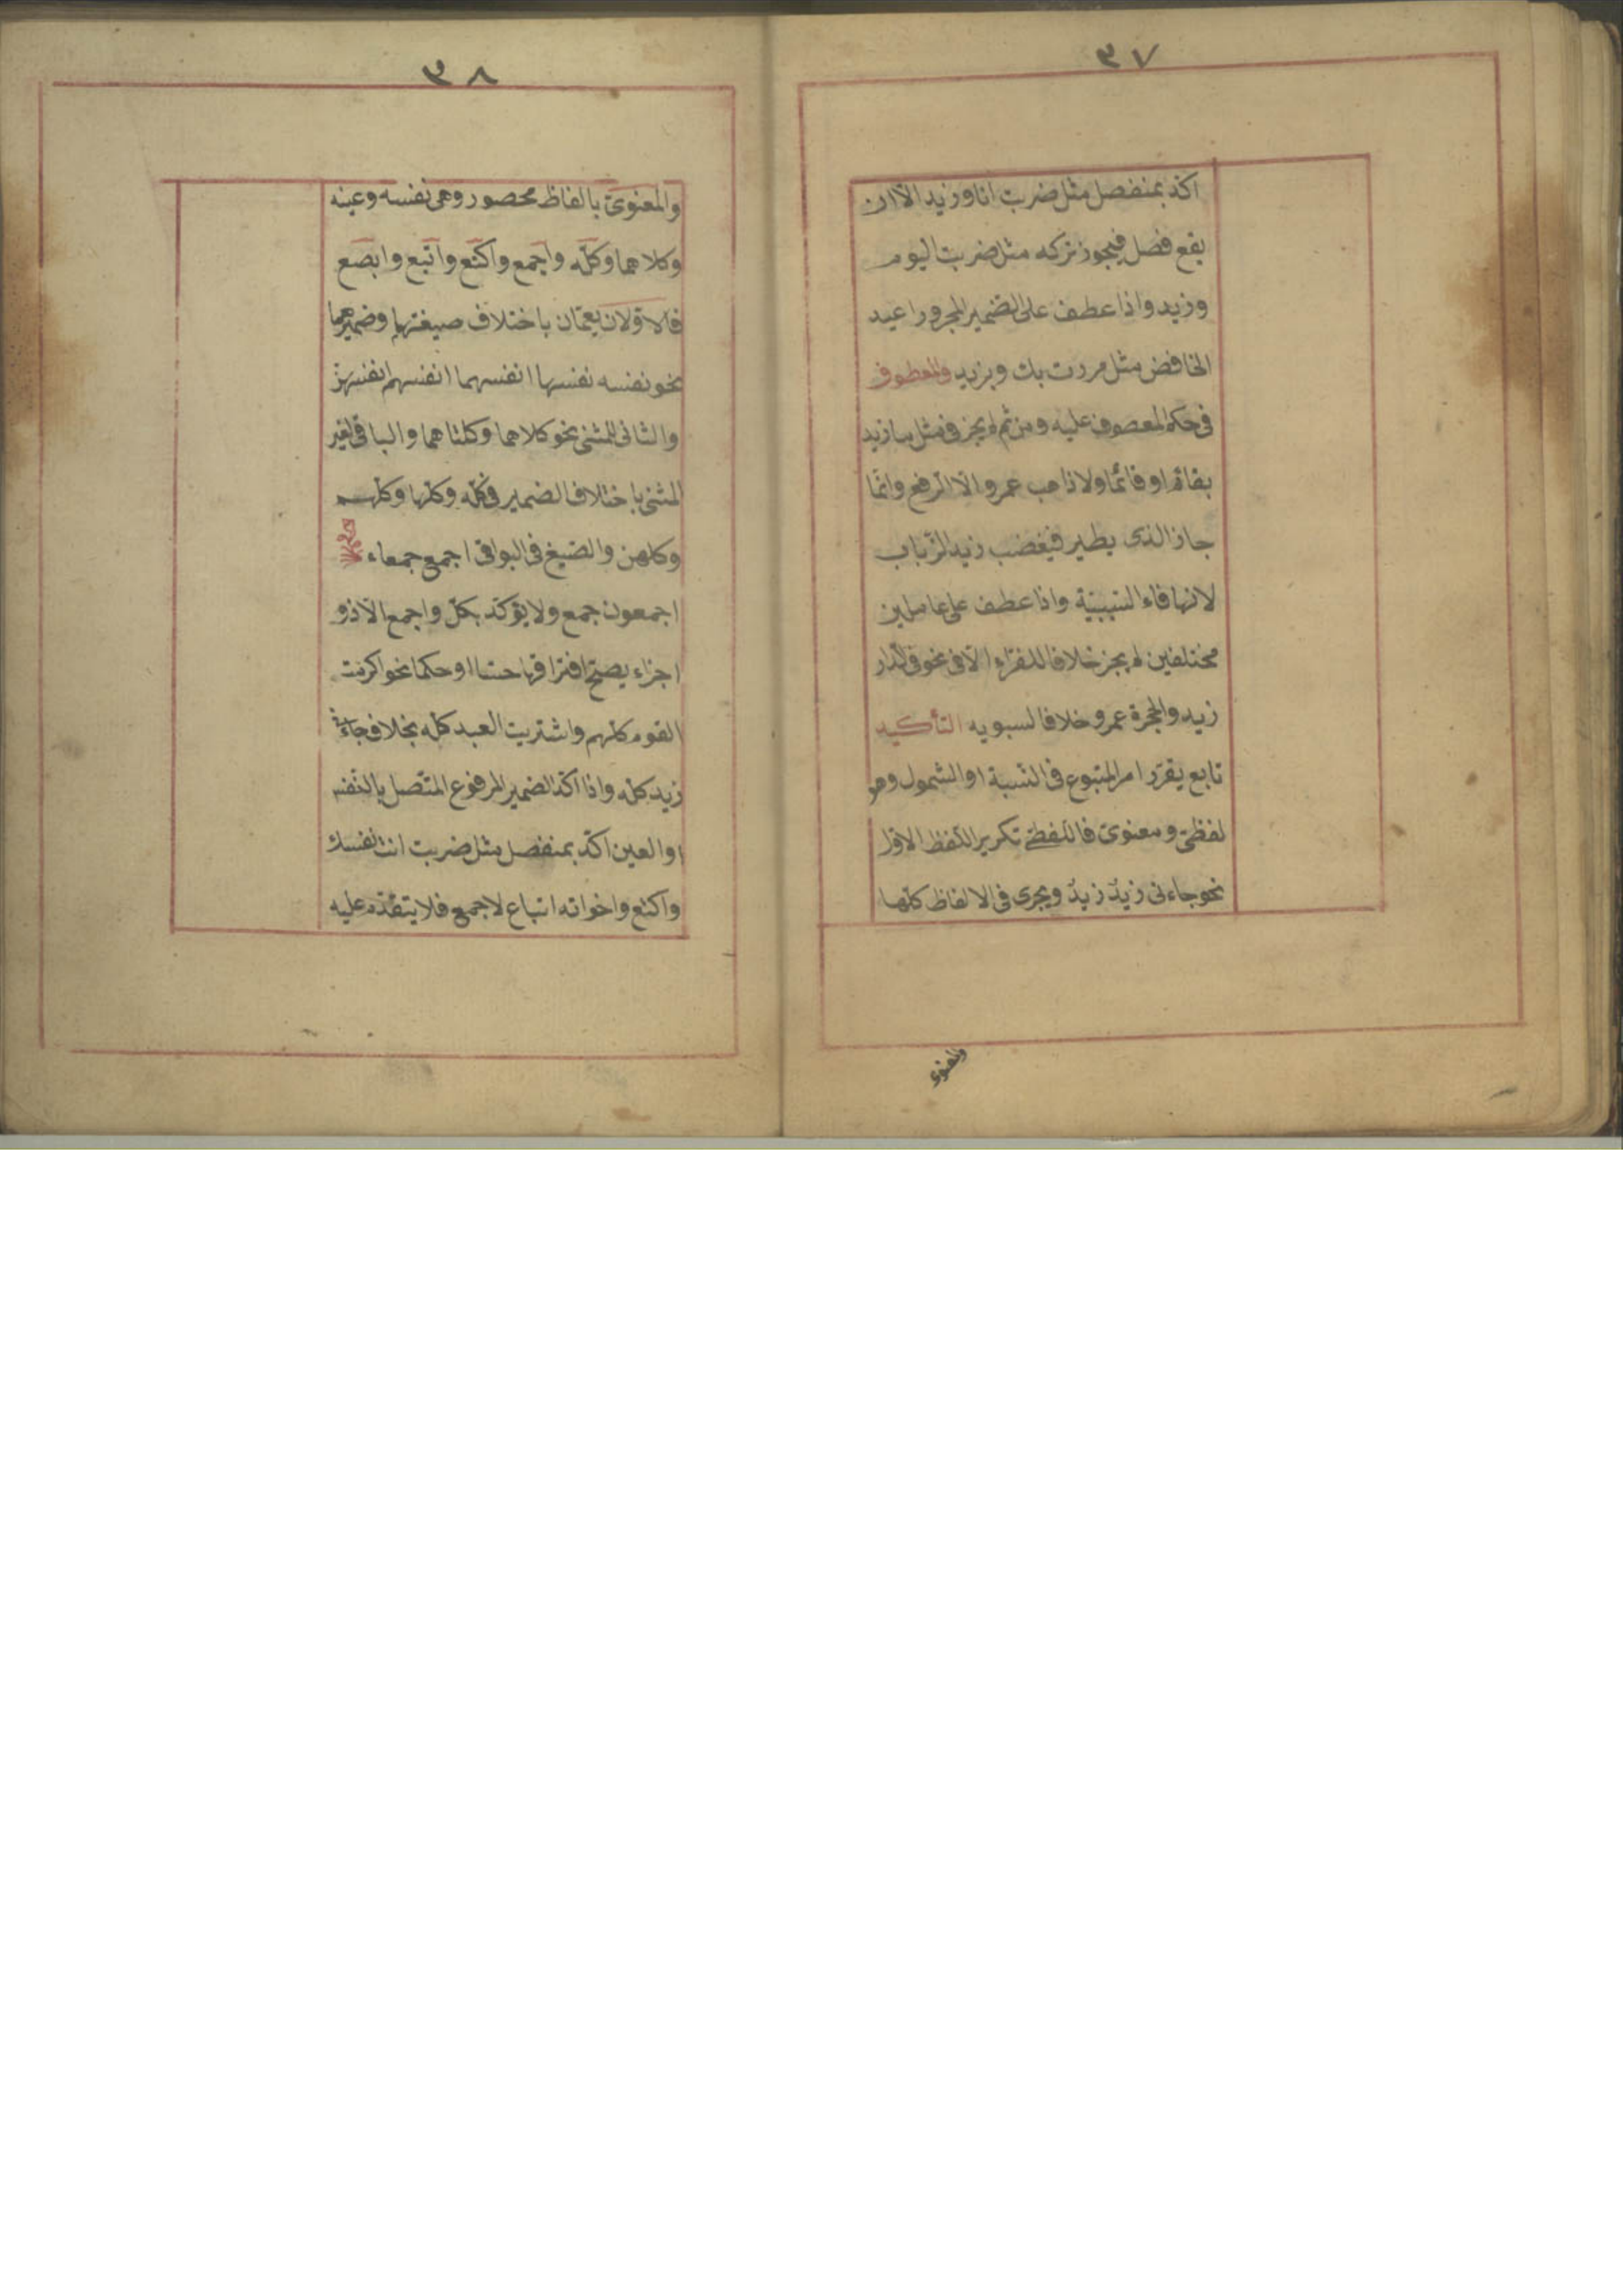 ٣٧
اكد بمنفصل مثل ضربت انا وزيد الا ان
يقع فصل فيجوز تركه مثل ضربت اليوم
وزيد واذا عطف على الضمير المجرور اعيد
الخافض مثل مررت بك وبزيد والمعطوف
فى حكم المعصوف عليه ومن ثم لم يجز فى مثل ما زيد
بقائم او قائما ولا ذاهب عمرو الا الرفع وانما
جاز الذى يطير فيغضب زيد الذباب
لانها فاء السببية واذا عطف على عاملين
مختلفين لم يجز خلافا للفراء الا فى نحو فى الدار
زيد والحجرة عمرو خلافا لسيبويه التأكيد
تابع يقرر امر المتبوع فى النسبة او الشمول وهو
لفظى ومعنوى فاللفظى تكرير اللفظ الاول
نحو جاءنى زيد زيد ويجرى فى الالفاظ كلها
والمعنوى
٣٨
والمعنوى بالفاظ محصور وهى نفسه وعينه
وكلاهما وكله واجمع واكتع واتبع وابصع
فالاولان يعمان باختلاف صيغتهما وضميرهما
نحو نفسه نفسها انفسهما انفسهم انفسهن
والثانى للمثنى نحو كلاهما وكلتاهما والباقى لغير
المثنى باختلاف الضمير فى كله وكلها وكلهم
وكلهن والصيغ فى البواقى اجمع جمعاء
اجمعون جمع ولا يؤكد بكل واجمع الا ذو
اجزاء يصح افتراقها حسا او حكما نحو اكرمت
القوم كلهم واشتريت العبد كله بخلاف جاءنى
زيد كله واذا اكد الضمير المرفوع المتصل بالنفس
او العين اكد بمنفصل مثل ضربت انت نفسك
واكتع واخواته اتباع لاجمع فلا يتقدم عليه